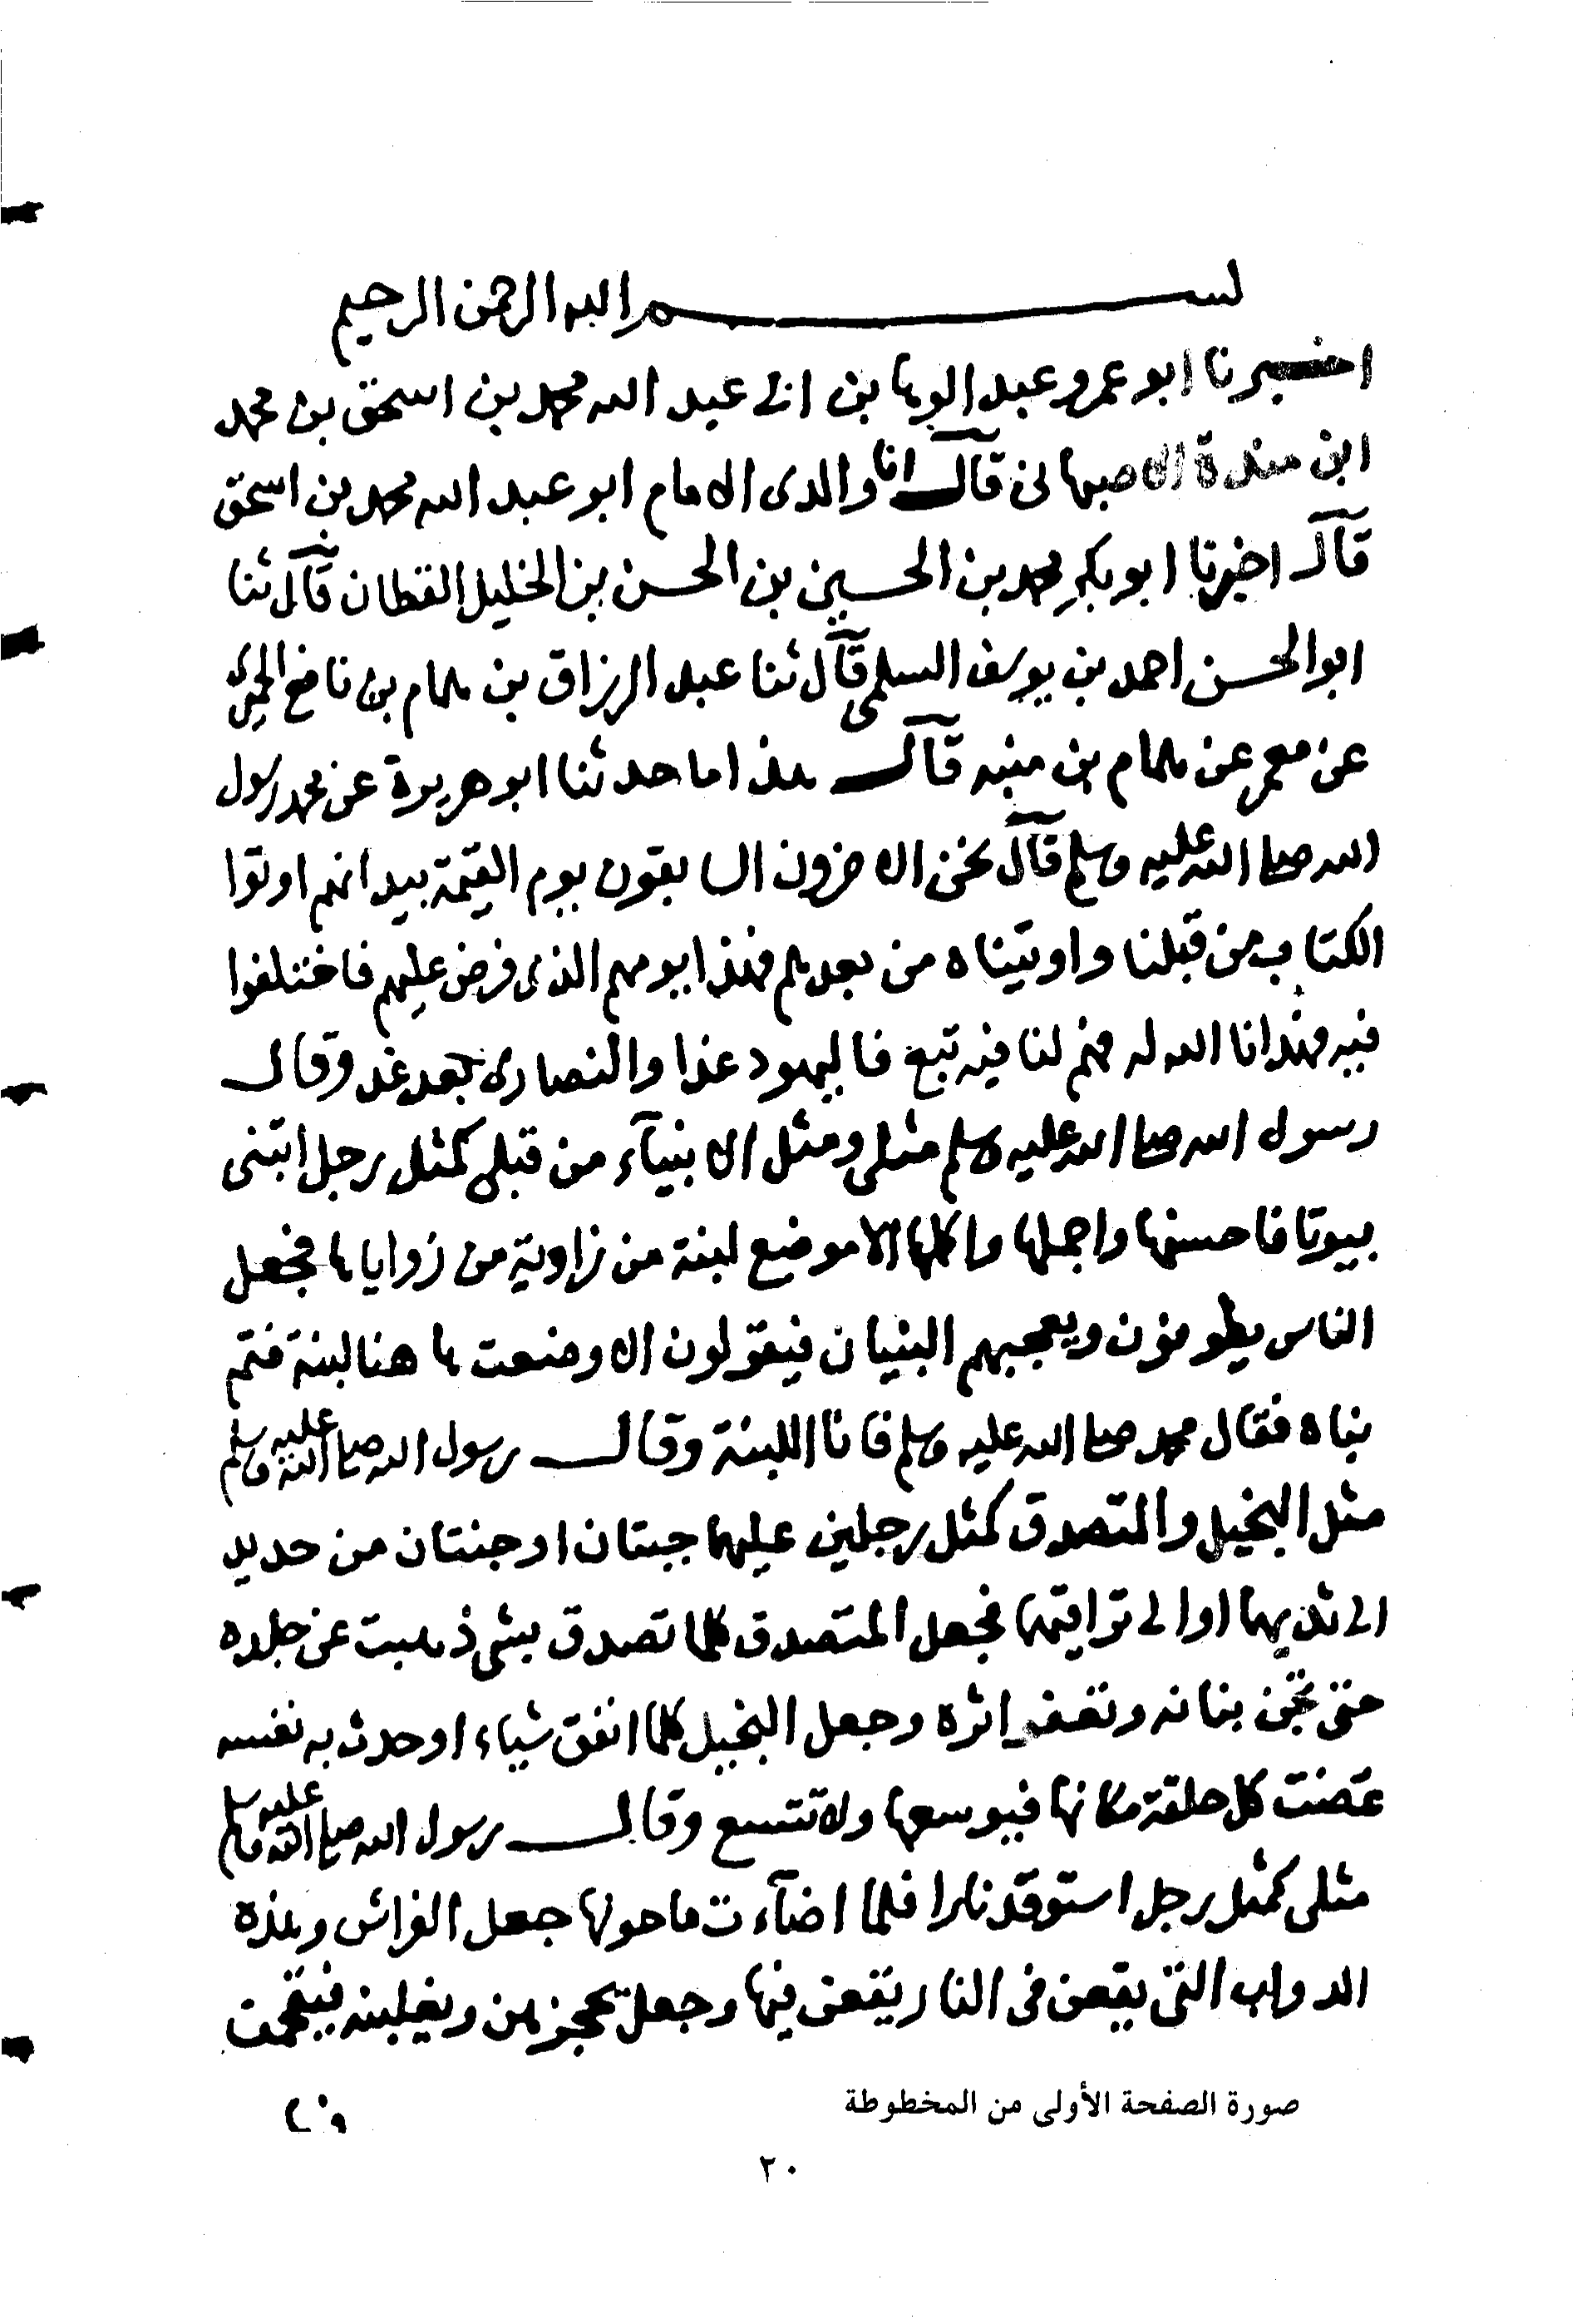 بسم الله الرحمن الرحيم
اخبرنا ابو عمرو عبد الوهاب بن ابى عبد الله محمد بن اسحق بن محمد
ابن مندة الاصبهانى قال انا والدى الامام ابو عبد الله محمد بن اسحق
قال اخبرنا ابو بكر محمد بن الحسين بن الحسن بن الخليل القطان قال ثنا
ابو الحسن احمد بن يوسف السلمى قال ثنا عبد الرزاق بن همام بن نافع الحميرى
عن معمر عن همام بن منبه قال هذا ما حدثنا ابو هريرة عن محمد رسول
الله صلى الله عليه وسلم قال نحن الاخرون السابقون يوم القيمة بيد انهم اوتوا
الكتاب من قبلنا واوتيناه من بعدهم فهذا يومهم الذى فرض عليهم فاختلفوا
فيه فهذانا الله له فهم لنا فيه تبع فاليهود غدا والنصارى بعد غد وقال
رسول الله صلى الله عليه وسلم مثلى ومثل الانبيآء من قبلى كمثل رجل ابتنى
بيوتا فاحسنها واجملها واكملها الا موضع لبنة من زاوية من زواياها فجعل
الناس يطوفون ويعجبهم البنيان فيقولون الا وضعت هاهنا لبنة فتم
بناه فقال محمد صلى الله عليه وسلم فانا اللبنة وقال رسول الله صلى الله عليه وسلم
مثل البخيل والمتصدق كمثل رجلين عليهما جبتان او جنتان من حديد
الى ثديهما او الى تراقيهما فجعل المتصدق كلما تصدق بشى ذهبت عن جلده
حتى تجن بنانه وتعفو اثره وجعل البخيل كلما انفق شياء او حدث به نفسه
عضت كل حلقة مكانها فيوسعها ولا تتسع وقال رسول الله صلى الله عليه وسلم
مثلى كمثل رجل استوقد نارا فلما اضآءت ما حولها جعل الفراش وهذه
الدواب التى يقعن فى النار يقعن فيها وجعل يحجزهن ويغلبنه فيتقحمن
صورة الصفحة الأولى من المخطوطة
٢٠